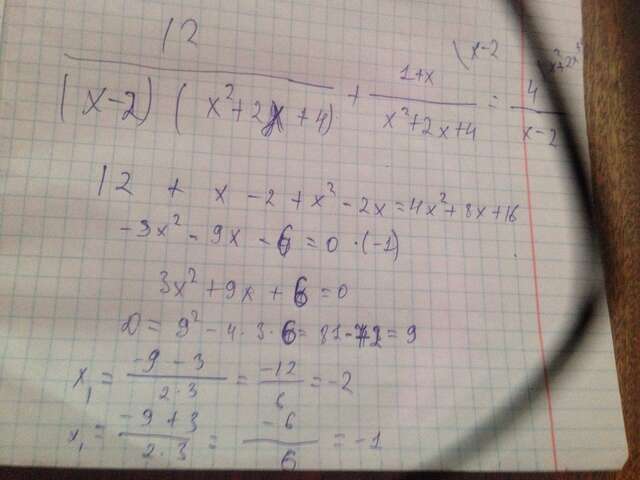 12/((x-2)(x²+2x+4)) + (1+x)/(x²+2x+4) \x-2 = 4/(x-2)
12 + x - 2 + x² - 2x = 4x² + 8x + 16
-3x² - 9x - 6 = 0 · (-1)
3x² + 9x + 6 = 0
D = 9² - 4 · 3 · 6 = 81 - 72 = 9
x₁ = (-9 - 3)/(2 · 3) = -12/6 = -2
x₁ = (-9 + 3)/(2 · 3) = -6/6 = -1